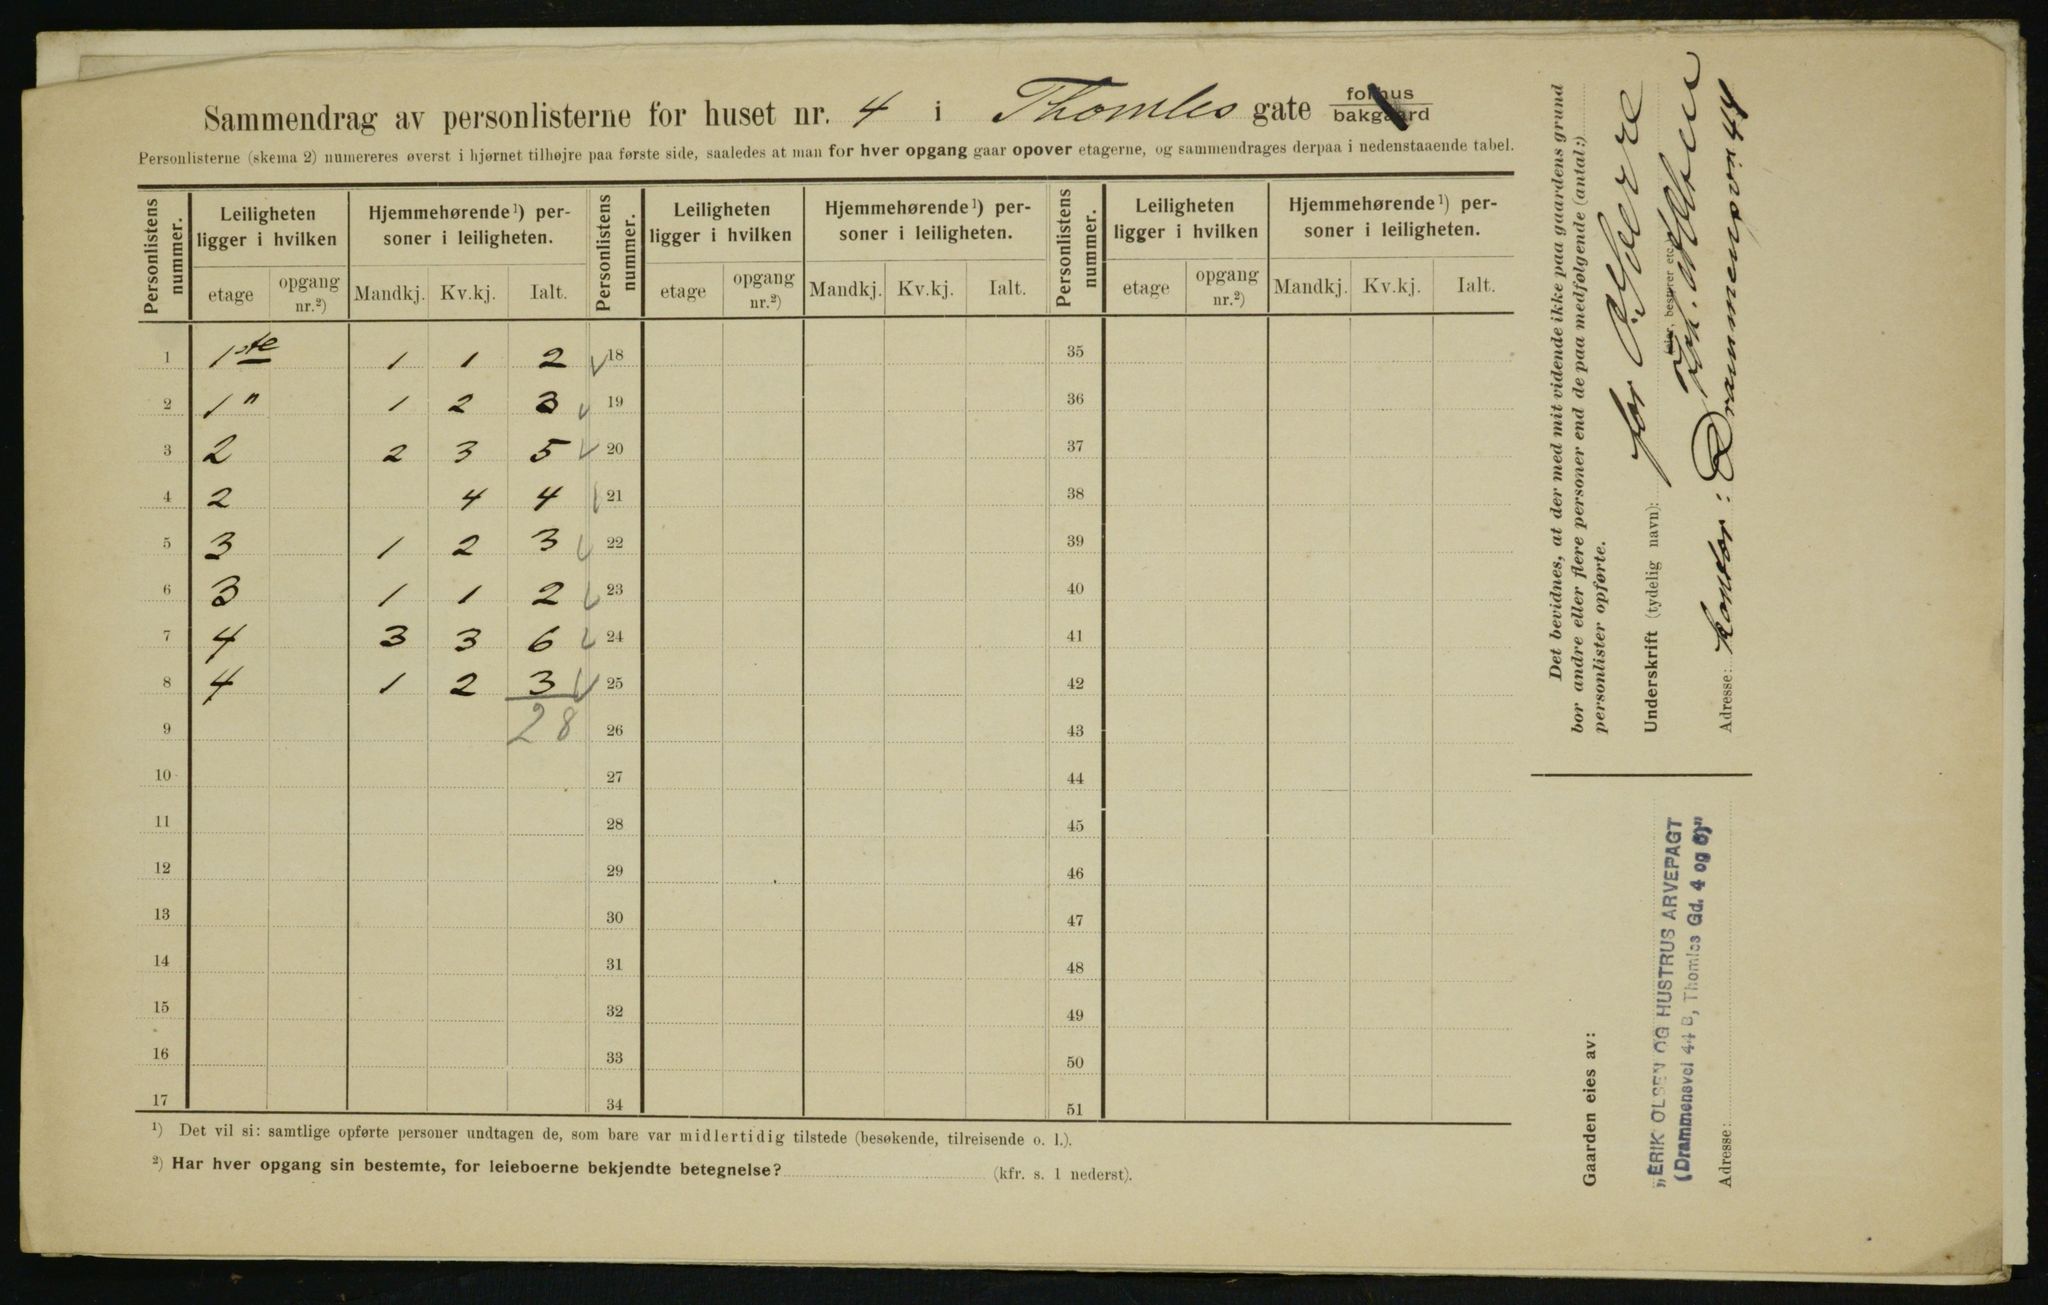 Sammendrag av personlisterne for huset nr. 4 i Thomles gate forhus bakgaard
Personlisterne (skema 2) numereres øverst i hjørnet tilhøjre paa første side, saaledes at man for hver opgang gaar opover etagerne, og sammendrages derpaa i nedenstaaende tabel.
Personlistens nummer. Leiligheten ligger i hvilken Hjemmehørende¹) personer i leiligheten. Personlistens nummer. Leiligheten ligger i hvilken Hjemmehørende¹) personer i leiligheten. Personlistens nummer. Leiligheten ligger i hvilken Hjemmehørende¹) personer i leiligheten.
etage opgang nr.²) Mandkj. Kv.kj. Ialt. etage opgang nr.²) Mandkj. Kv.kj. Ialt. etage opgang nr.²) Mandkj. Kv.kj. Ialt.
1 1ste 1 1 2 18 35
2 1" 1 2 3 19 36
3 2 2 3 5 20 37
4 2 4 4 21 38
5 3 1 2 3 22 39
6 3 1 1 2 23 40
7 4 3 3 6 24 41
8 4 1 2 3 25 42
9 28 26 43
10 27 44
11 28 45
12 29 46
13 30 47
14 31 48
15 32 49
16 33 50
17 34 51
¹) Det vil si: samtlige opførte personer undtagen de, som bare var midlertidig tilstede (besøkende, tilreisende o. l.).
²) Har hver opgang sin bestemte, for leieboerne bekjendte betegnelse? (kfr. s. 1 nederst).
Det bevidnes, at der med mit vidende ikke paa gaardens grund
bor andre eller flere personer end de paa medfølgende (antal:)
personlister opførte.
for Eiere
Underskrift (tydelig navn):
Adresse: Kontor: Drammensvn 44
Gaarden eies av:
„ERIK OLSEN OG HUSTRUS ARVEPAGT
(Drammensvei 44 B, Thomles Gd. 4 og 6)"
Adresse: